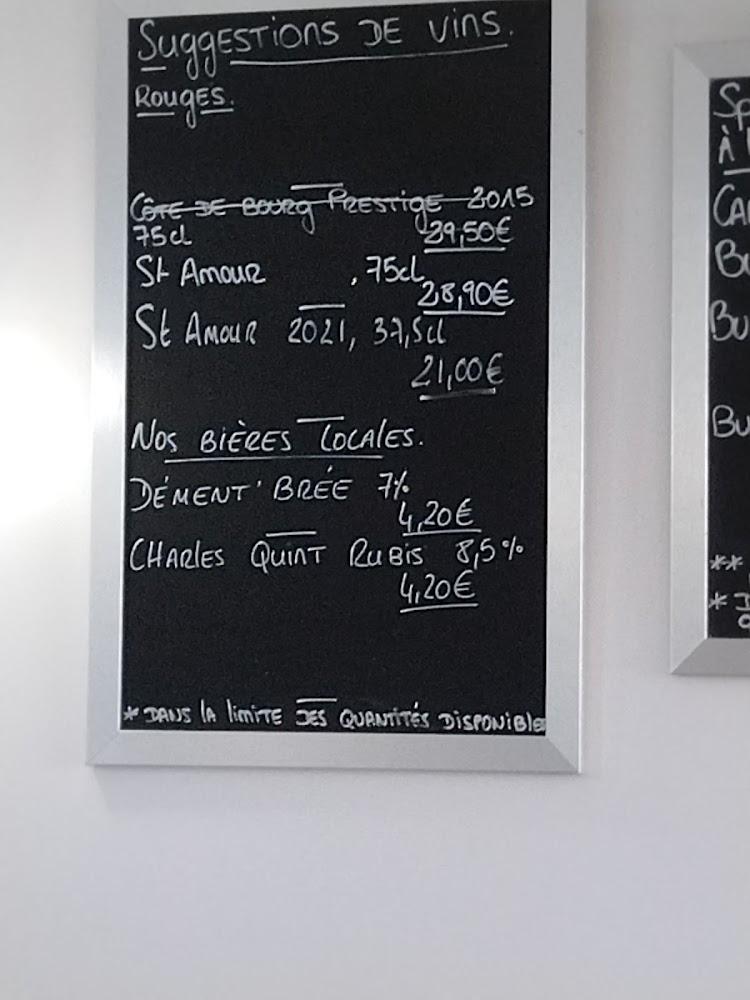 Suggestions de vins.
Rouges.
Côte de Bourg Prestige 2015
75cl 29,50€
St Amour , 75cl
28,90€
St Amour 2021, 37,5cl
21,00€
Nos bières locales.
Dément'Brée 7%
4,20€
Charles Quint Rubis 8,5%
4,20€
* Dans la limite des quantités disponibles
Sp
À
Ca
Bu
Bu
Bu
**
*